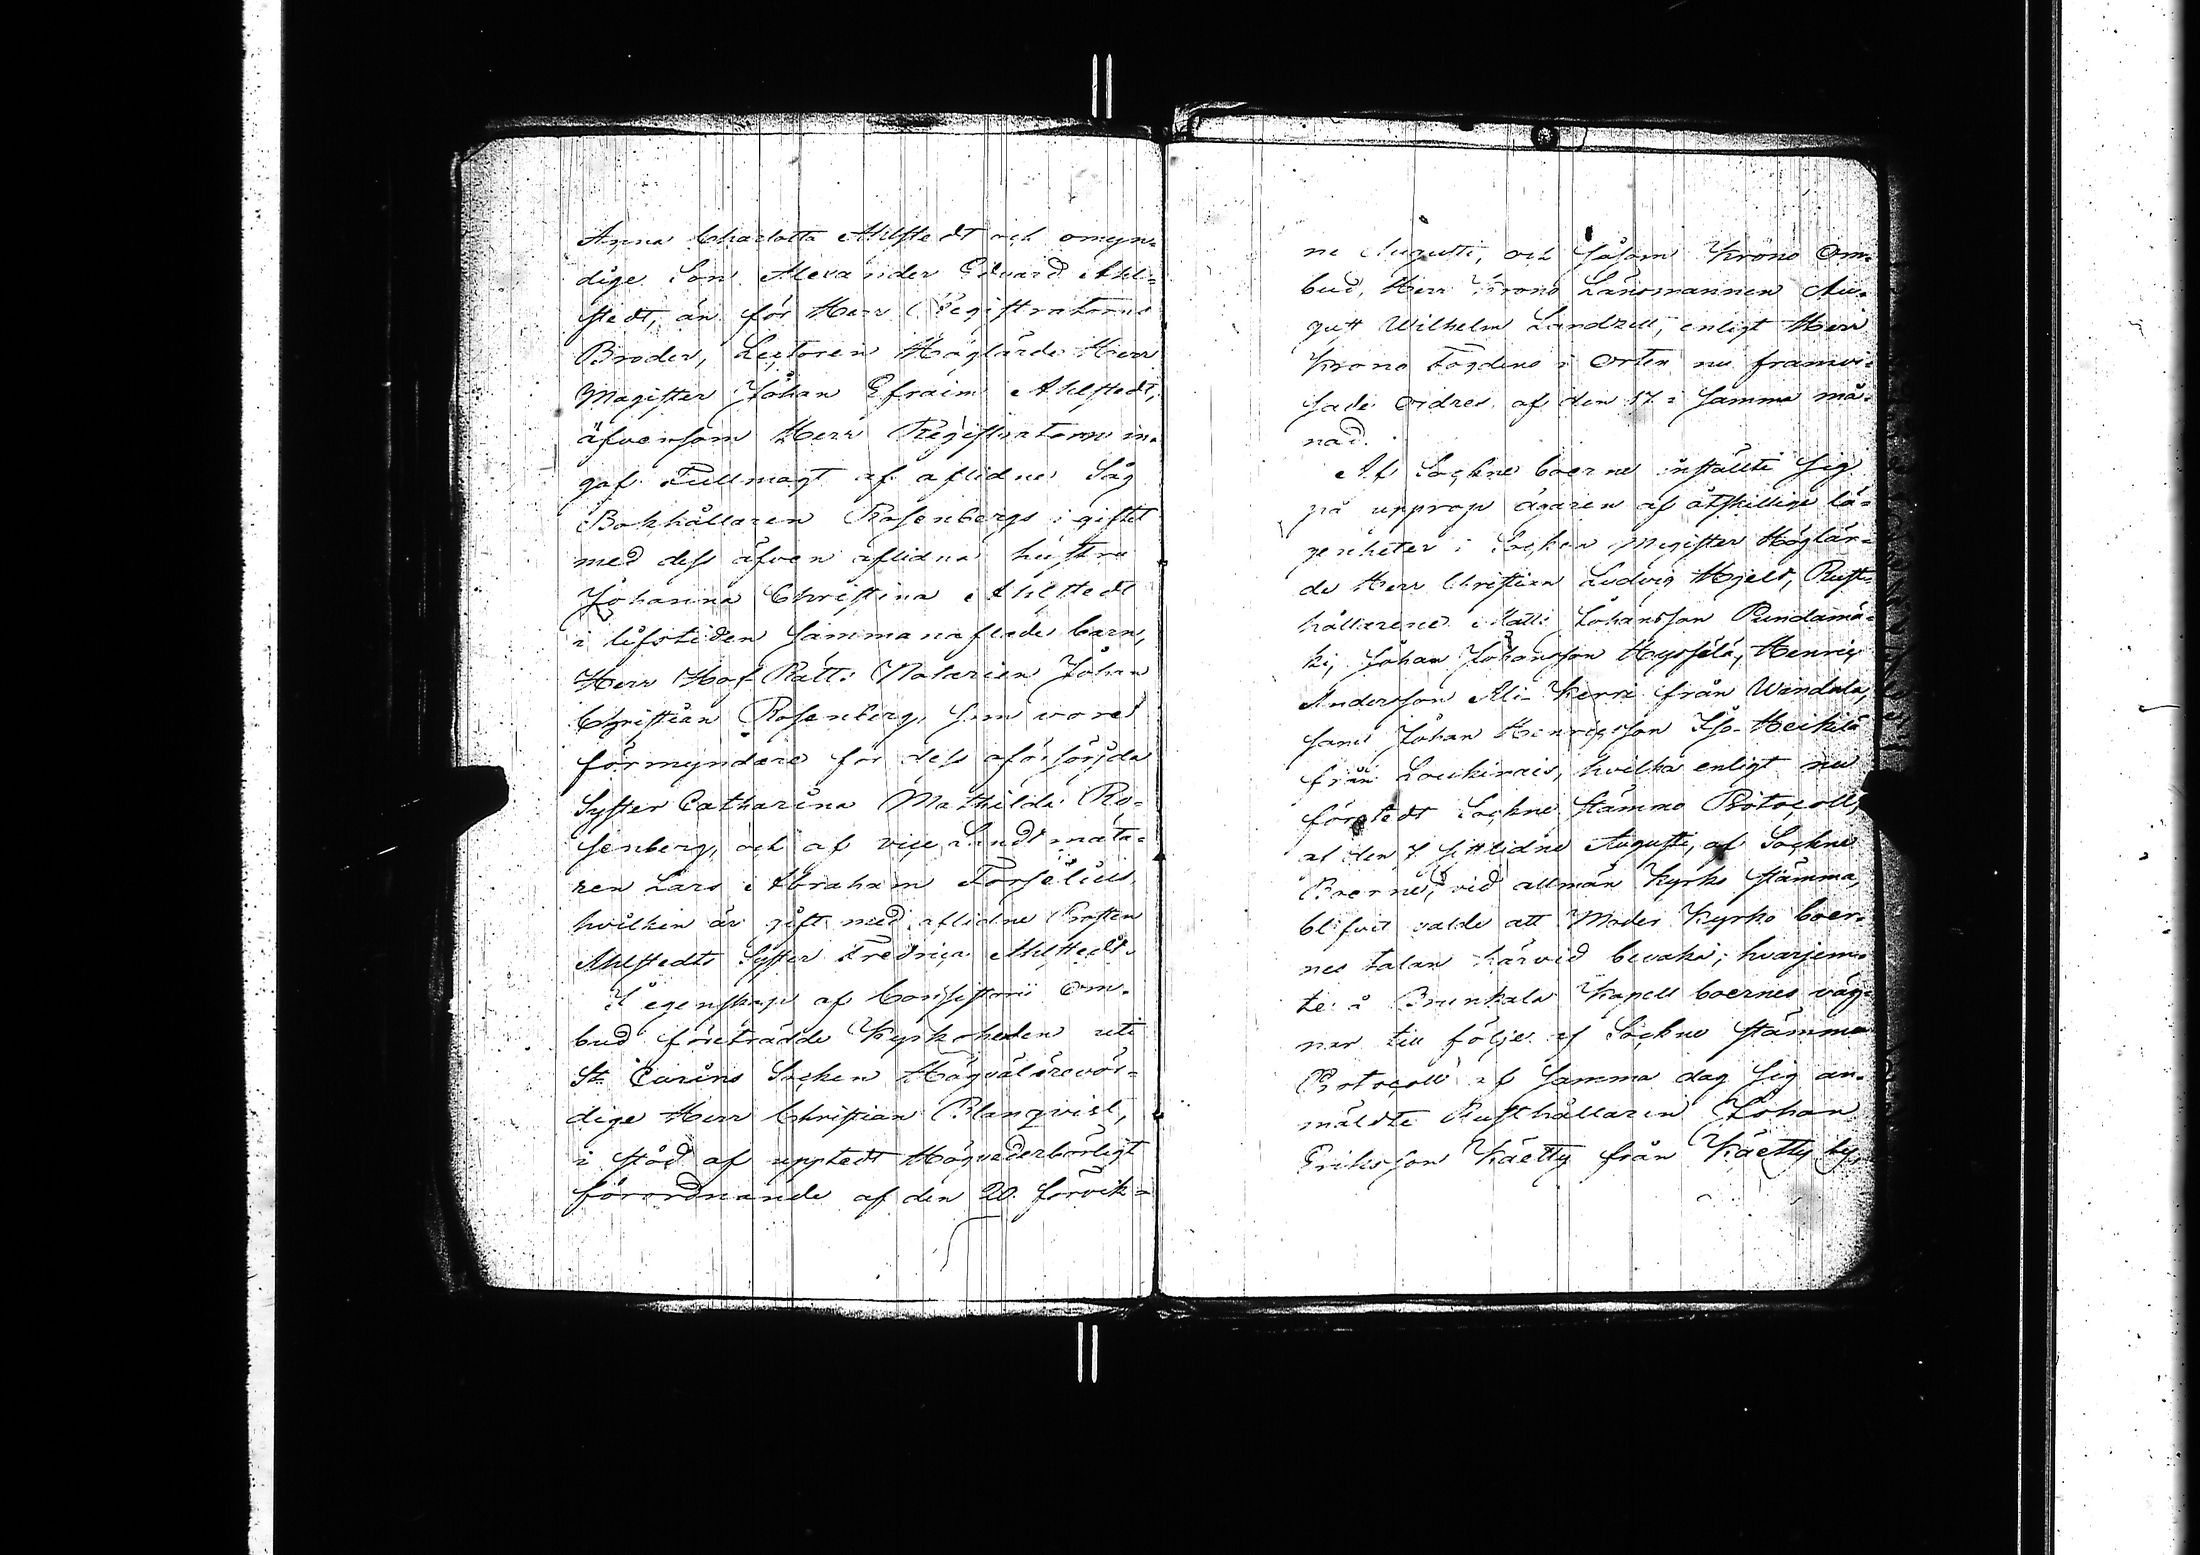 Anna Charlotta Ahlstedt och omyn-
dige Son Alexander Edvard Ahl-
stedt, än för Herr Registratorns
Broder, Lectoren Höglärde Herr
Magister Johan Efraim Ahlstedt,
äfvensom Herr Registratorn in-
gaf Fullmagt af aflidne Såg
Bokhållaren Rosenbergs i giftet
med dess äfven aflidna hustru
Johanna Christina Ahlstedt
i lifstiden sammanaflade barn,
Herr Hof Rätts Notarien Johan
Christian Rosenberg, som vore
förmyndare för dess oförsörjda
Syster Catharina Mathilda Ro-
senberg, och af vice Landtmäta-
ren Lars Abraham Forselius
hvilken är gift med aflidne Prosten
Ahlstedts Syster Fredrica Ahlstedt.
I egenskap af Consistorii Om-
bud företrädde Kyrkoherden uti
St. Carins Socken Högvälärevör-
dige Herr Christian Blanqvist,
i stöd af uppteedt Högvederbörligt
förordnande af den 20 förvik-
ne Augusti, och såsom Krono Om-
bud, Herr Krono Länsmannen Au-
gust Wilhelm Landzell, enligt Herr
Krono Fogdens i Orten nu framvi-
sade Ordres af den 17 i samma må-
nad.
Af Sockne boerne instälte sig
på upprop ägaren af åtskillige lä-
genheter i Socken Magister Höglär-
de Herr Christian Ludvig Hjelt, Rust-
hållarene Matts Johansson Rundamä-
ki, Johan Johansson Hyssälä, Henric
Andersson Ali-Kerri från Wandala,
samt Johan Henricsson Iso-Heikilä
från Loukinais, hvilka enligt nu
förtedt Sockne Stämmo Protocoll,
af den 7 sistlidne Augusti, af Sockne
Boerne, vid allmän Kyrko stämma,
blifvit valde att Moder Kyrko boer-
nes talan härvid bevaka; hvarjem-
te å Brunkala Kapell boernes väg-
nar till följe af Sockne stämmo
Protocoll af samma dag sig an-
mäldte Rusthållaren Johan
Eriksson Käetty från Käetty by,